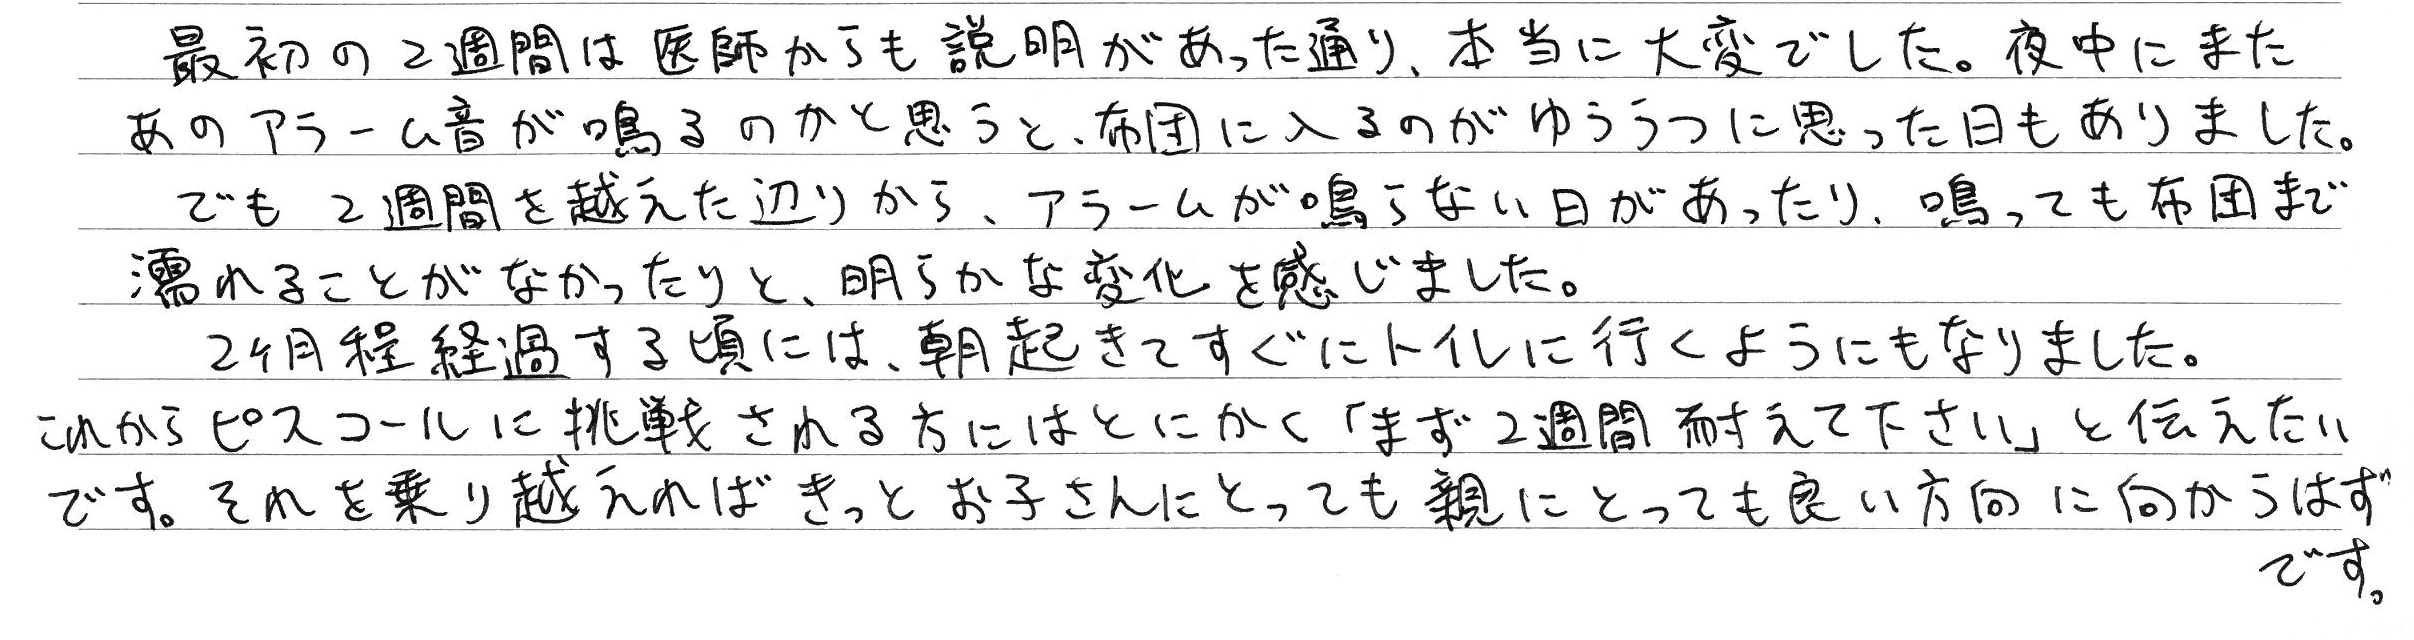 最初の2週間は医師からも説明があった通り、本当に大変でした。夜中にまた
あのアラーム音が鳴るのかと思うと、布団に入るのがゆううつに思った日もありました。
でも 2週間を越えた辺りから、アラームが鳴らない日があったり、鳴っても布団まで
濡れることがなかったりと、明らかな変化を感じました。
2ヶ月程経過する頃には、朝起きてすぐにトイレに行くようにもなりました。
これからピスコールに挑戦される方にはとにかく「まず2週間耐えて下さい」と伝えたい
です。それを乗り越えればきっとお子さんにとっても親にとっても良い方向に向かうはず
です。